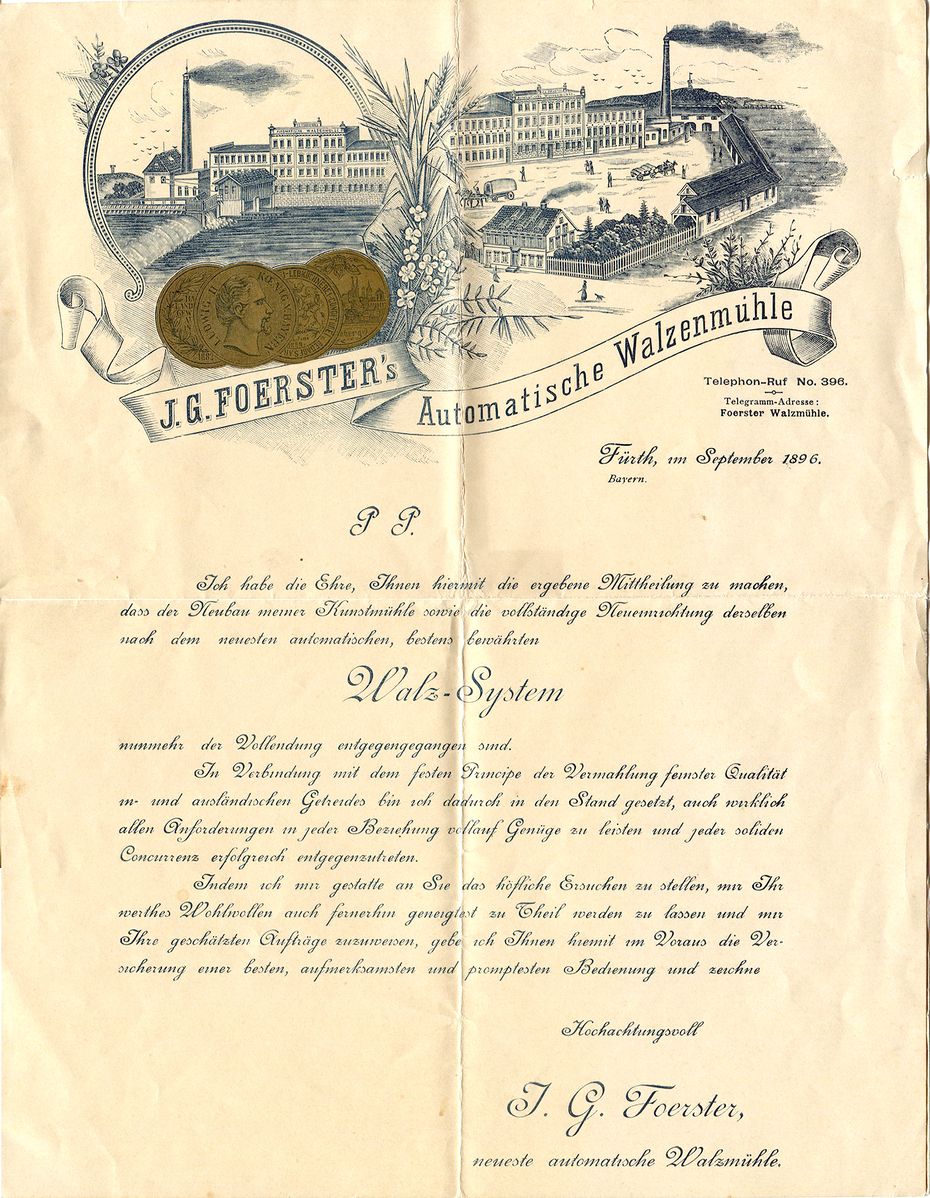 LUDWIG II KOENIG V. BAYERN
1882
J.G. FOERSTER's
Automatische Walzenmühle
Telephon-Ruf No. 396.
Telegramm-Adresse:
Foerster Walzmühle.
Fürth, im September 1896.
Bayern.
P P.
Ich habe die Ehre, Ihnen hiermit die ergebene Mittheilung zu machen,
dass der Neubau meiner Kunstmühle sowie die vollständige Neueinrichtung derselben
nach dem neuesten automatischen, bestens bewährten
Walz-System
nunmehr der Vollendung entgegengegangen sind.
In Verbindung mit dem festen Principe der Vermahlung feinster Qualität
in- und ausländischen Getreides bin ich dadurch in den Stand gesetzt, auch wirklich
allen Anforderungen in jeder Beziehung vollauf Genüge zu leisten und jeder soliden
Concurrenz erfolgreich entgegenzutreten.
Indem ich mir gestatte an Sie das höfliche Ersuchen zu stellen, mir Ihr
werthes Wohlwollen auch fernerhin geneigtest zu Theil werden zu lassen und mir
Ihre geschätzten Aufträge zuzuweisen, gebe ich Ihnen hiemit im Voraus die Ver-
sicherung einer besten, aufmerksamsten und promptesten Bedienung und zeichne
Hochachtungsvoll
J. G. Foerster,
neueste automatische Walzmühle.